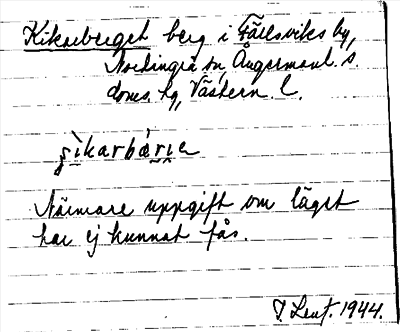 Kikarberget berg i Fällsviks by,
Nordingrå sn, Ångermanl. s.
doms. hg, Västern. l.
Närmare uppgift om läget
har ej kunnat fås.
1944.